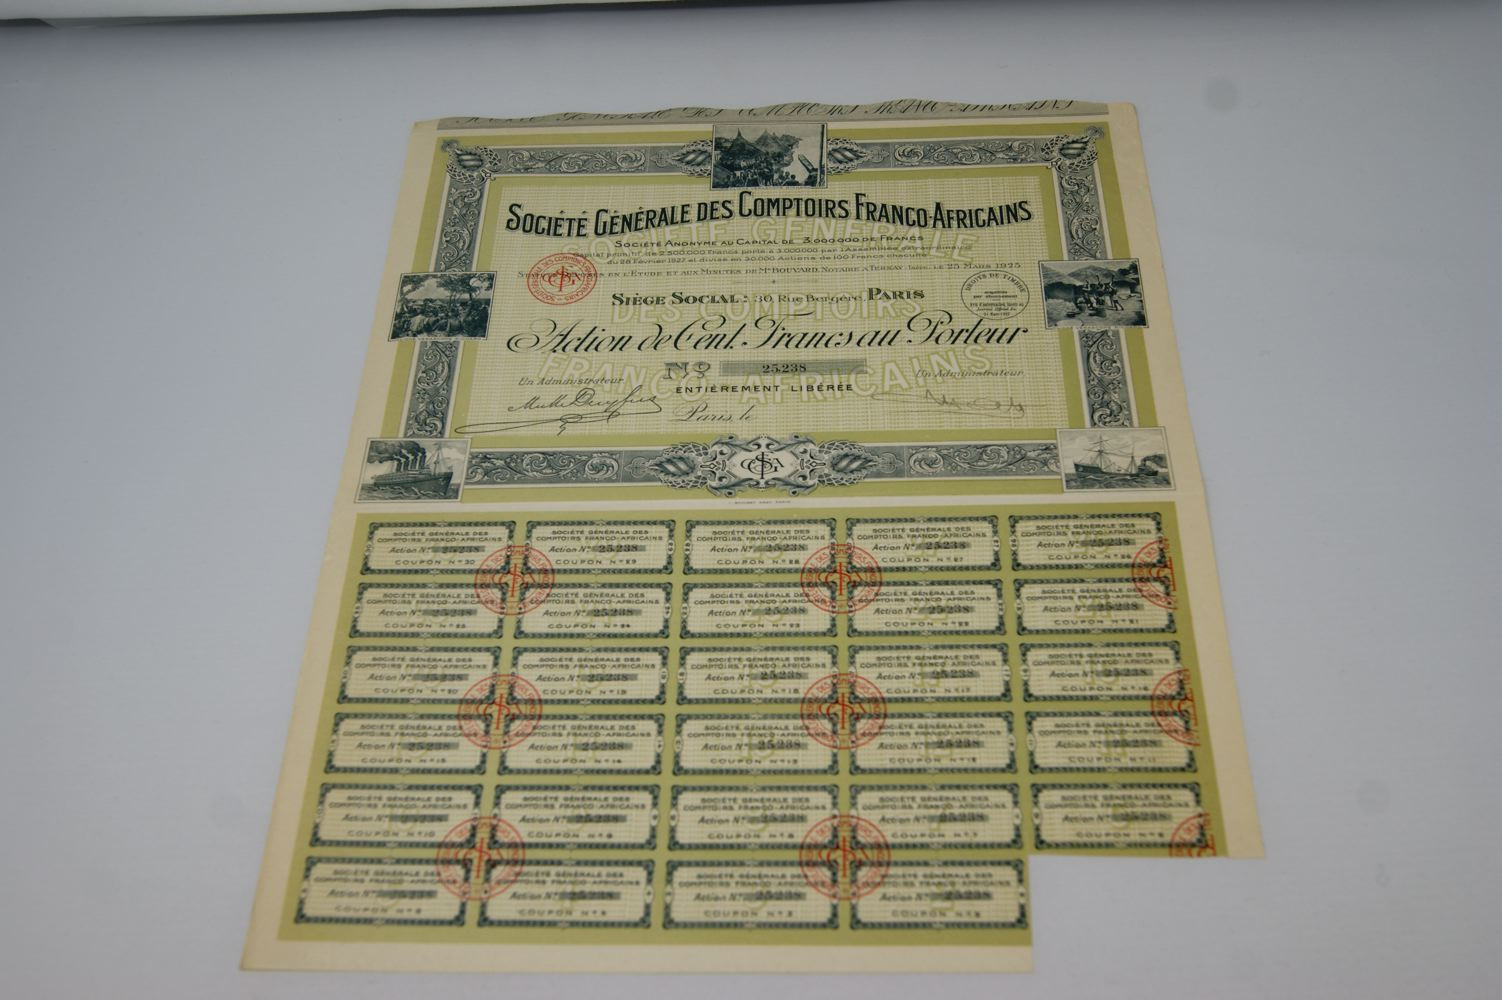 SOCIÉTÉ GÉNÉRALE DES COMPTOIRS FRANCO-AFRICAINS
SOCIÉTÉ ANONYME AU CAPITAL DE 3.000.000 DE FRANCS
Capital primitif de 2.500.000 Francs porté à 3.000.000 par l'Assemblée extraordinaire
du 28 Février 1927 et divisé en 30.000 Actions de 100 Francs chacune
EN L'ÉTUDE ET AUX MINUTES DE Me BOUVARD, NOTAIRE À TERNAY (Isère), LE 25 MARS 1925
SIÈGE SOCIAL: 30, Rue Bergère, PARIS
DROITS DE TIMBRE
acquittés
par abonnement
Action de Cent Francs au Porteur
No 25.238
ENTIÈREMENT LIBÉRÉE
Un Administrateur
Un Administrateur
Paris, le
SOCIÉTÉ GÉNÉRALE DES
COMPTOIRS FRANCO-AFRICAINS
Action No 25.238
COUPON No 30
SOCIÉTÉ GÉNÉRALE DES
COMPTOIRS FRANCO-AFRICAINS
Action No 25.238
COUPON No 29
SOCIÉTÉ GÉNÉRALE DES
COMPTOIRS FRANCO-AFRICAINS
Action No 25.238
COUPON No 28
SOCIÉTÉ GÉNÉRALE DES
COMPTOIRS FRANCO-AFRICAINS
Action No 25.238
COUPON No 27
SOCIÉTÉ GÉNÉRALE DES
COMPTOIRS FRANCO-AFRICAINS
Action No 25.238
COUPON No 26
SOCIÉTÉ GÉNÉRALE DES
COMPTOIRS FRANCO-AFRICAINS
Action No 25.238
COUPON No 25
SOCIÉTÉ GÉNÉRALE DES
COMPTOIRS FRANCO-AFRICAINS
Action No 25.238
COUPON No 24
SOCIÉTÉ GÉNÉRALE DES
COMPTOIRS FRANCO-AFRICAINS
Action No 25.238
COUPON No 23
SOCIÉTÉ GÉNÉRALE DES
COMPTOIRS FRANCO-AFRICAINS
Action No 25.238
COUPON No 22
SOCIÉTÉ GÉNÉRALE DES
COMPTOIRS FRANCO-AFRICAINS
Action No 25.238
COUPON No 21
SOCIÉTÉ GÉNÉRALE DES
COMPTOIRS FRANCO-AFRICAINS
Action No 25.238
COUPON No 20
SOCIÉTÉ GÉNÉRALE DES
COMPTOIRS FRANCO-AFRICAINS
Action No 25.238
COUPON No 19
SOCIÉTÉ GÉNÉRALE DES
COMPTOIRS FRANCO-AFRICAINS
Action No 25.238
COUPON No 18
SOCIÉTÉ GÉNÉRALE DES
COMPTOIRS FRANCO-AFRICAINS
Action No 25.238
COUPON No 17
SOCIÉTÉ GÉNÉRALE DES
COMPTOIRS FRANCO-AFRICAINS
Action No 25.238
COUPON No 16
SOCIÉTÉ GÉNÉRALE DES
COMPTOIRS FRANCO-AFRICAINS
Action No 25.238
COUPON No 15
SOCIÉTÉ GÉNÉRALE DES
COMPTOIRS FRANCO-AFRICAINS
Action No 25.238
COUPON No 14
SOCIÉTÉ GÉNÉRALE DES
COMPTOIRS FRANCO-AFRICAINS
Action No 25.238
COUPON No 13
SOCIÉTÉ GÉNÉRALE DES
COMPTOIRS FRANCO-AFRICAINS
Action No 25.238
COUPON No 12
SOCIÉTÉ GÉNÉRALE DES
COMPTOIRS FRANCO-AFRICAINS
Action No 25.238
COUPON No 11
SOCIÉTÉ GÉNÉRALE DES
COMPTOIRS FRANCO-AFRICAINS
Action No 25.238
COUPON No 10
SOCIÉTÉ GÉNÉRALE DES
COMPTOIRS FRANCO-AFRICAINS
Action No 25.238
COUPON No 9
SOCIÉTÉ GÉNÉRALE DES
COMPTOIRS FRANCO-AFRICAINS
Action No 25.238
COUPON No 8
SOCIÉTÉ GÉNÉRALE DES
COMPTOIRS FRANCO-AFRICAINS
Action No 25.238
COUPON No 7
SOCIÉTÉ GÉNÉRALE DES
COMPTOIRS FRANCO-AFRICAINS
Action No 25.238
COUPON No 6
SOCIÉTÉ GÉNÉRALE DES
COMPTOIRS FRANCO-AFRICAINS
Action No 25.238
COUPON No 5
SOCIÉTÉ GÉNÉRALE DES
COMPTOIRS FRANCO-AFRICAINS
Action No 25.238
COUPON No 4
SOCIÉTÉ GÉNÉRALE DES
COMPTOIRS FRANCO-AFRICAINS
Action No 25.238
COUPON No 3
SOCIÉTÉ GÉNÉRALE DES
COMPTOIRS FRANCO-AFRICAINS
Action No 25.238
COUPON No 2